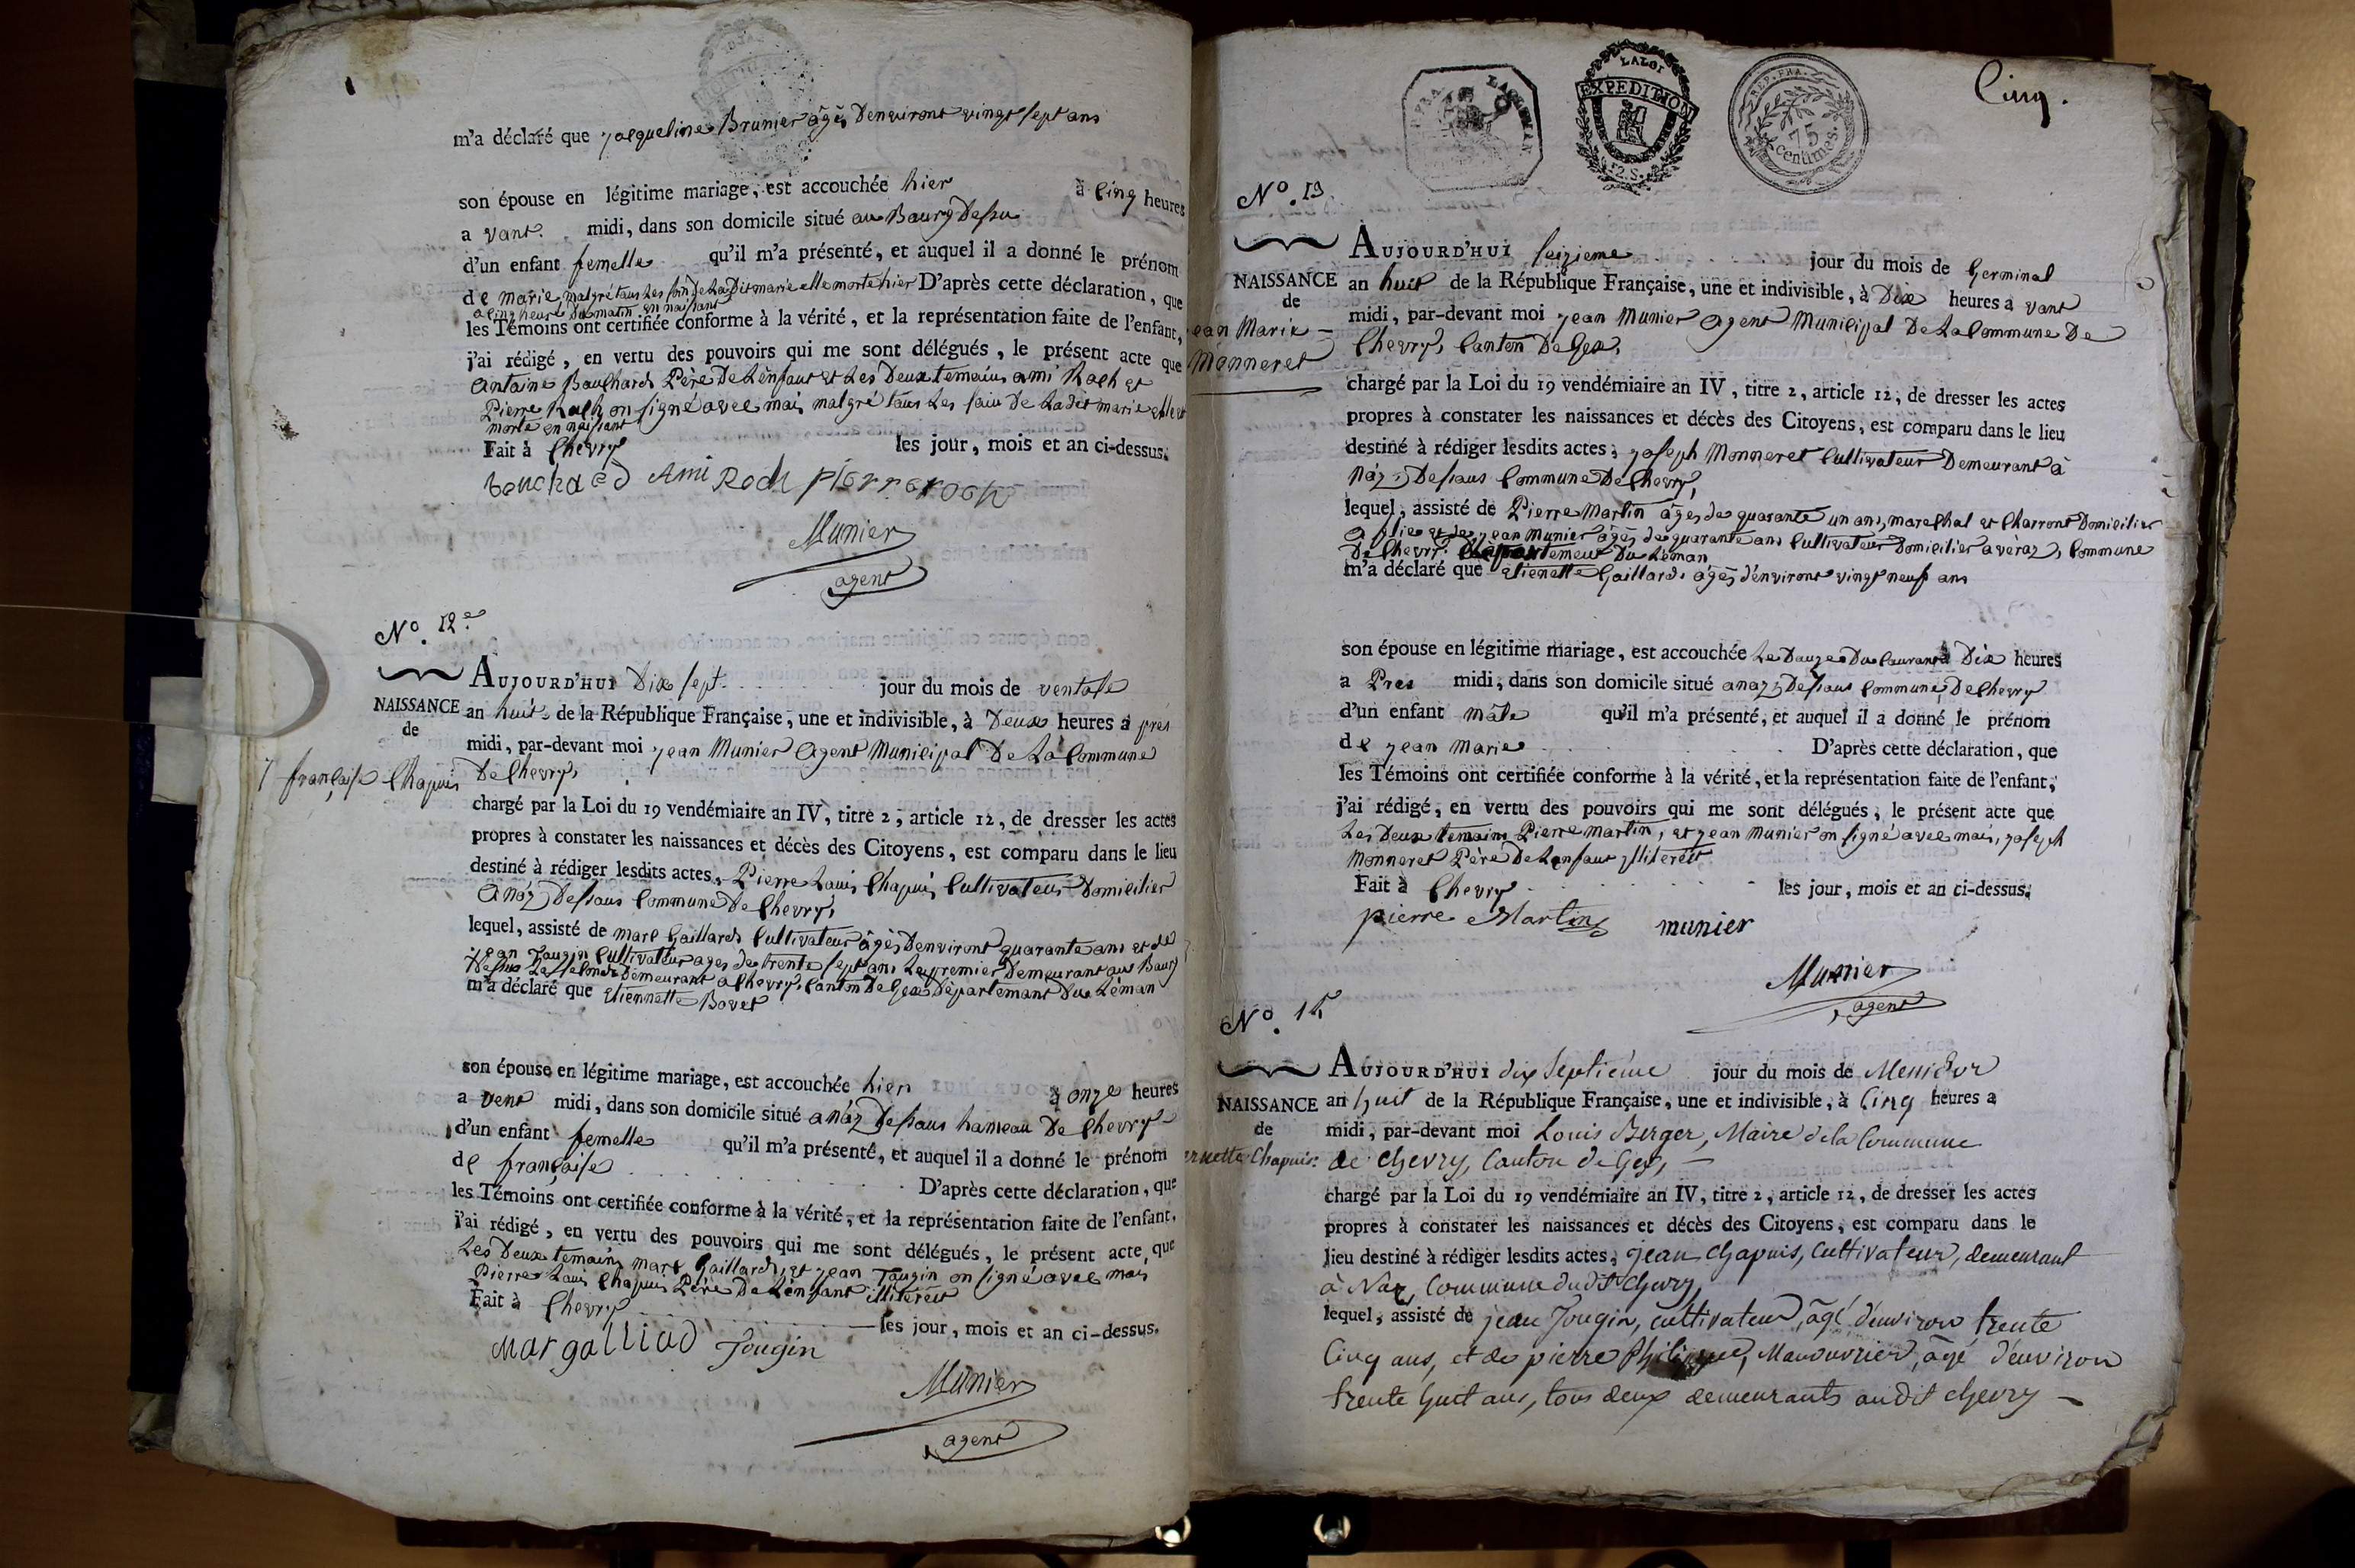 m'a déclaré que jacqueline Brunier âgés Denviront vingt sept ans
son épouse en légitime mariage, est accouchée hier à Cinq heures
a vant. midi, dans son domicile situé au Bourg Dessu
d'un enfant femelle qu'il m'a présenté, et auquel il a donné le prénom
de marie malgré tous Les soin De La Dit marie elle morte hier D'après cette déclaration, que
a Cinq heure du matin en naissant
les Témoins ont certifiée conforme à la vérité, et la représentation faite de l'enfant,
j'ai rédigé, en vertu des pouvoirs qui me sont délégués, le présent acte que
Antoine Bouchard Père De Lenfant et Les Deux temoins ami Roch et
Pierre Roch on signé avec moi malgré tous Les soin De La dit marie elle est
morte en naissant
Fait à Chevry les jour, mois et an ci-dessus.
bouchard Ami Roch pierre roch
Munier
agent
No. 12e
AUJOURD'HUI Dix sept jour du mois de ventose
NAISSANCE an huit de la République Française, une et indivisible, à Deux heures a prés
de
midi, par-devant moi jean Munier Agent Municipal De La Commune
française Chapuis De Chevry,
chargé par la Loi du 19 vendémiaire an IV, titre 2, article 12, de dresser les actes
propres à constater les naissances et décès des Citoyens, est comparu dans le lieu
destiné à rédiger lesdits actes, Pierre Louis Chapuis Cultivateur Domicilier
A náz Dessous Commune De Chevry,
lequel, assisté de marc Gaillard Cultivateur âgés Denviront quarante ans et de
jean Jougin Cultivateur ages de trente sept ans Le premier Demeurant au Bourg
Dessus Le second Demeurant a Chevry, Canton De Gex Départemant Du Léman
m'a déclaré que Etiennette Bovet
son épouse en légitime mariage, est accouchée hier à onze heures
a vent midi, dans son domicile situé a náz Dessous hameau De Chevry
d'un enfant femelle qu'il m'a présenté, et auquel il a donné le prénom
de française D'après cette déclaration, que
les Témoins ont certifiée conforme à la vérité, et la représentation faite de l'enfant,
j'ai rédigé, en vertu des pouvoirs qui me sont délégués, le présent acte que
Les Deux temoins marc Gaillard, et jean Jougin on signé avec moi
Pierre Louis Chapuis Père De Lenfant illiteret
Fait à Chevry les jour, mois et an ci-dessus.
mar galliad Jougin
Munier
agent
LA LOI
EXPEDITION
12. S.
REP. FRA.
75
centimes.
Cinq.
No. 13
AUJOURD'HUI seizieme jour du mois de Germinal
NAISSANCE an huit de la République Française, une et indivisible, à Dix heures a vant
de
midi, par-devant moi jean Munier Agent Municipal De La Commune De
ean Marie
Chevry, Canton De Gex,
Monneret
chargé par la Loi du 19 vendémiaire an IV, titre 2, article 12, de dresser les actes
propres à constater les naissances et décès des Citoyens, est comparu dans le lieu
destiné à rédiger lesdits actes, joseph Monneret Cultivateur Demeurant à
náz Dessous Commune De Chevry,
lequel, assisté de Pierre Martin âges de quarante un ans, marechal et Charront Domicilier
et de jean Munier âgés de quarante ans Cultivateur Domicilier a véraz, Commune
De Chevry Du Léman
m'a déclaré que Etienette Gaillard âgés d'environt vingt neuf ans
son épouse en légitime mariage, est accouchée Le Douze Du Courant à Dix heures
a Pres midi, dans son domicile situé a naz Dessous Commune De Chevry
d'un enfant mâle qu'il m'a présenté, et auquel il a donné le prénom
de jean Marie D'après cette déclaration, que
les Témoins ont certifiée conforme à la vérité, et la représentation faite de l'enfant,
j'ai rédigé, en vertu des pouvoirs qui me sont délégués, le présent acte que
Les Deux temoins Pierre martin, et jean munier on signé avec moi, joseph
Monneret Père De Lenfant illiteret
Fait à Chevry les jour, mois et an ci-dessus.
pierre Martin munier
Munier
agent
No.
AUJOURD'HUI dix Septième jour du mois de Messidor
NAISSANCE an huit de la République Française, une et indivisible, à Cinq heures a
de midi, par-devant moi Louis Berger, Maire de la Commune
nette Chapuis. de Chevry, Canton de Gex,
chargé par la Loi du 19 vendémiaire an IV, titre 2, article 12, de dresser les actes
propres à constater les naissances et décès des Citoyens, est comparu dans le
lieu destiné à rédiger lesdits actes, jean Chapuis, Cultivateur, demeurant
à Naz, Commune dudit Chevry,
lequel, assisté de jean Jougin, cultivateur, âgé d'environ trente
Cinq ans, et de pierre Philippe, Manouvrier, âgé d'environ
trente huit ans, tous deux demeurants audit Chevry